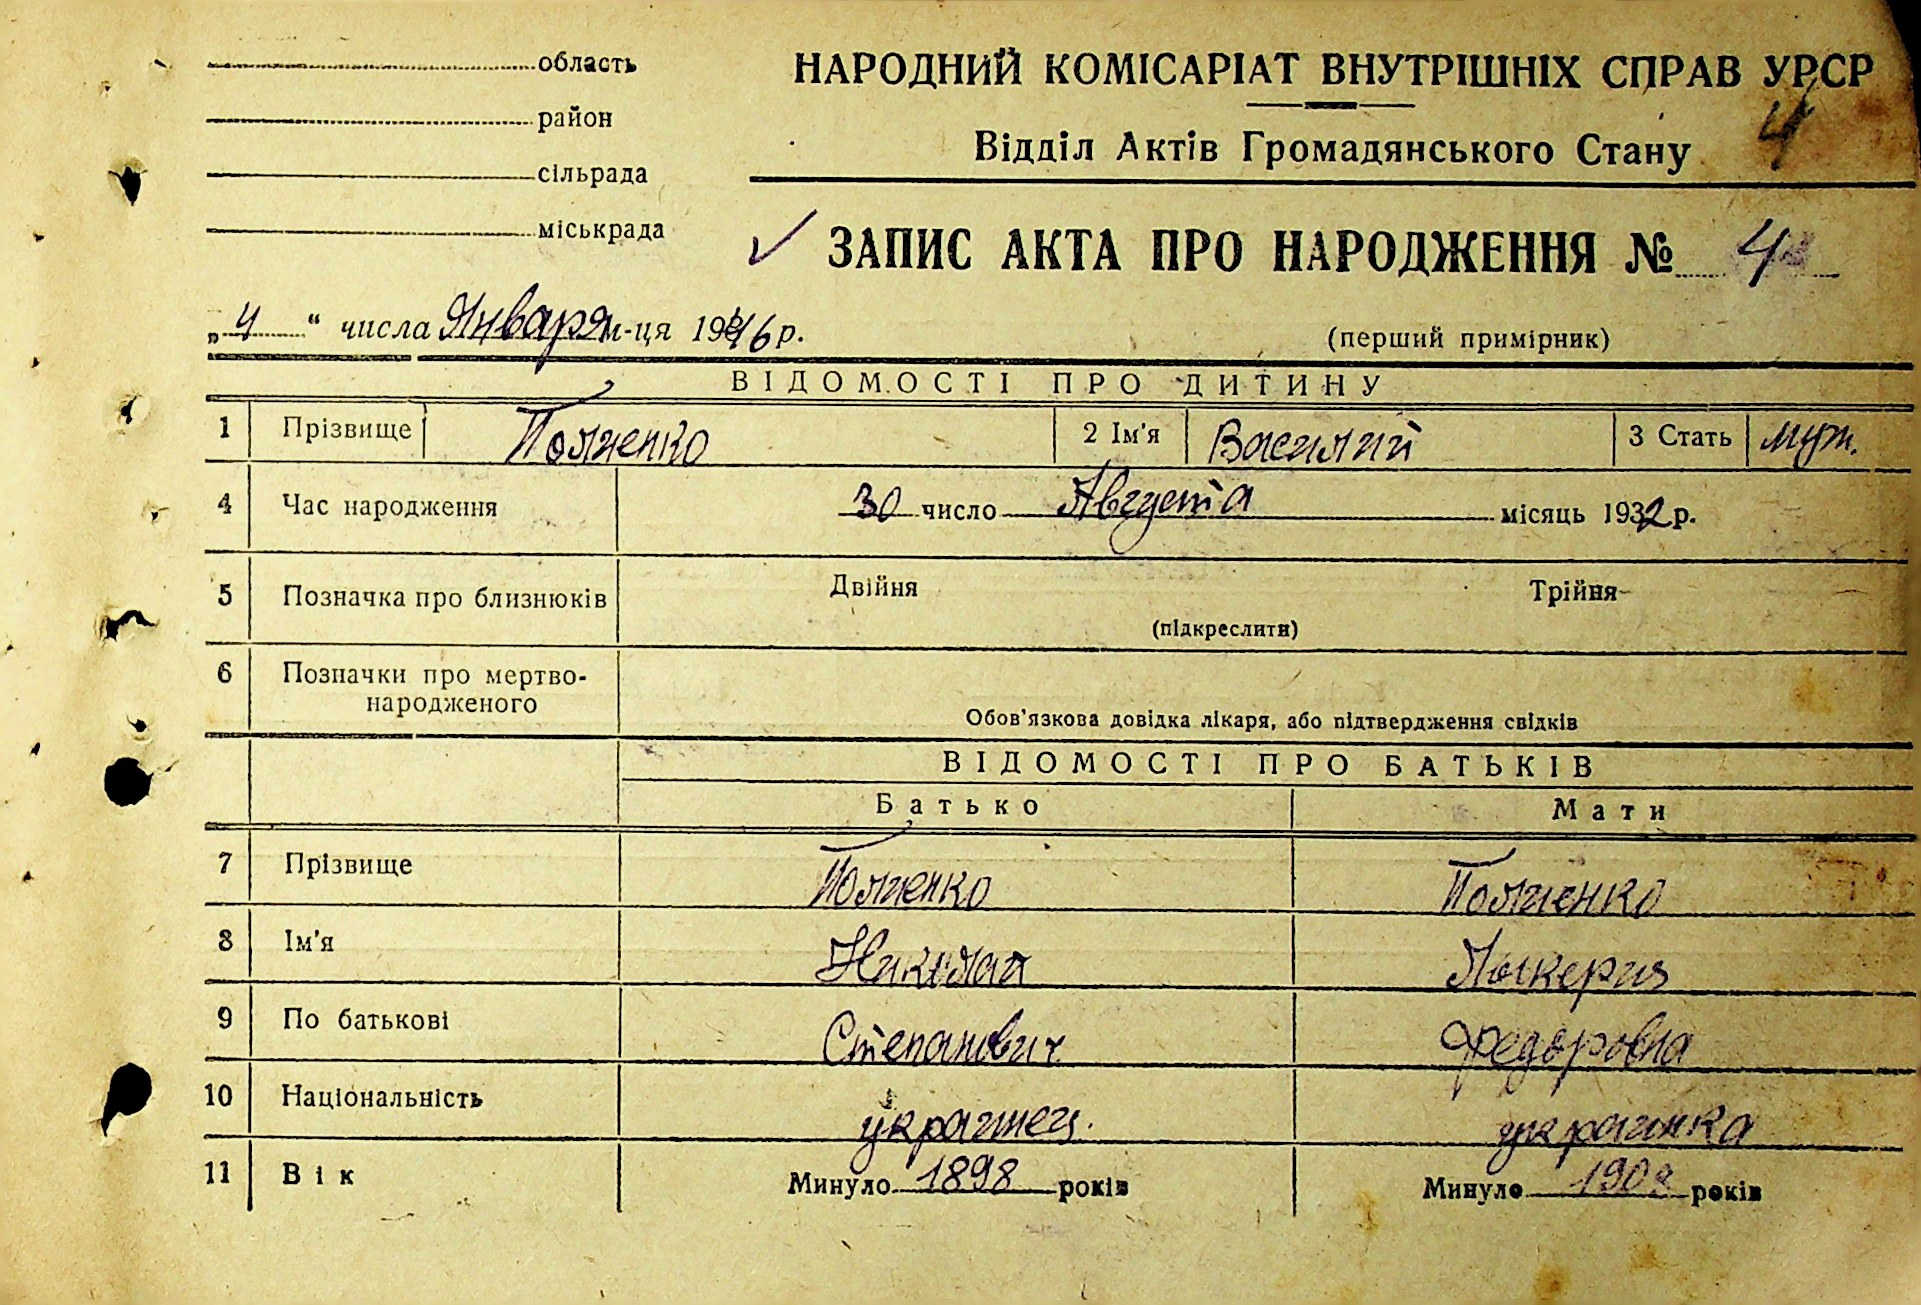 область
район
сільрада
міськрада
НАРОДНИЙ КОМІСАРІАТ ВНУТРІШНІХ СПРАВ УРСР
4
Відділ Актів Громадянського Стану
ЗАПИС АКТА ПРО НАРОДЖЕННЯ № 4
„4“ числа Января м-ця 1946 р.
(перший примірник)
ВІДОМОСТІ ПРО ДИТИНУ
1 Прізвище 2 Ім'я Василий 3 Стать муж.
4 Час народження 30 число Августа місяць 1932 р.
5 Позначка про близнюків Двійня Трійня
(підкреслити)
6 Позначки про мертво-
народженого
Обов'язкова довідка лікаря, або підтвердження свідків
ВІДОМОСТІ ПРО БАТЬКІВ
Батько Мати
7 Прізвище
8 Ім'я Николай Лукерия
9 По батькові Степанович Федоровна
10 Національність украинец. украинка
11 Вік Минуло 1898 років Минуло років